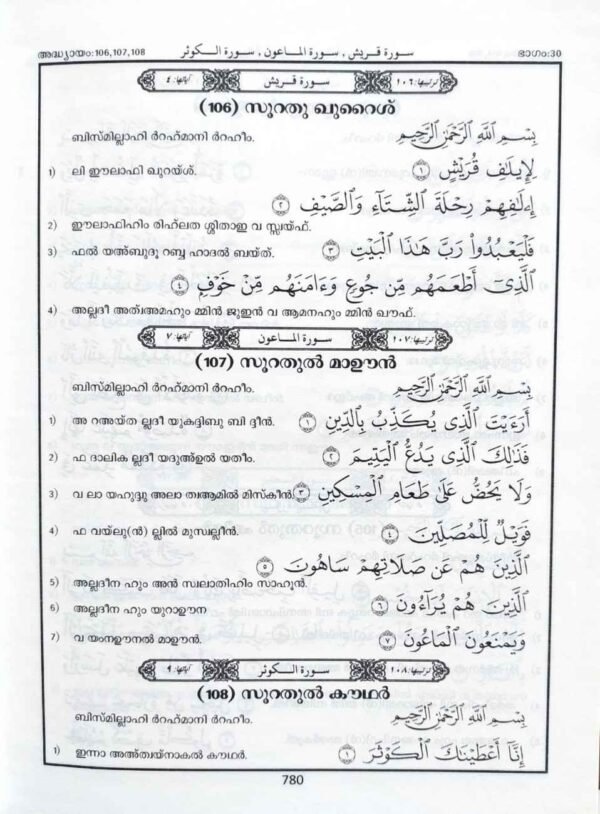 അദ്ധ്യായം:106,107,108 سورة قريش ، سورة الماعون ، سورة الكوثر ഭാഗം:30
آياتها: ٤ سورة قريش ترتيبها: ١٠٦
(106) സൂറതു ഖുറൈശ്
ബിസ്മില്ലാഹി ർറഹ്മാനി ർറഹീം. بِسْمِ اللَّهِ الرَّحْمَٰنِ الرَّحِيمِ
1) ലി ഈലാഫി ഖുറയ്ശ്. لِإِيلَافِ قُرَيْشٍ ١
إِۦلَافِهِمْ رِحْلَةَ الشِّتَاءِ وَالصَّيْفِ ٢
2) ഈലാഫിഹിം രിഹ്‌ലത ശ്ശിതാഇ വ സ്സ്വയ്ഫ്.
3) ഫൽ യഅ്ബുദൂ റബ്ബ ഹാദൽ ബയ്ത്. فَلْيَعْبُدُوا رَبَّ هَٰذَا الْبَيْتِ ٣
الَّذِي أَطْعَمَهُم مِّن جُوعٍ وَءَامَنَهُم مِّنْ خَوْفٍ ٤
4) അല്ലദീ അത്വ്അമഹും മ്മിൻ ജൂഇൻ വ ആമനഹും മ്മിൻ ഖൗഫ്.
آياتها: ٧ سورة الماعون ترتيبها: ١٠٧
(107) സൂറതുൽ മാഊൻ
ബിസ്മില്ലാഹി ർറഹ്മാനി ർറഹീം. بِسْمِ اللَّهِ الرَّحْمَٰنِ الرَّحِيمِ
1) അ റഅയ്ത ല്ലദീ യുകദ്ദിബു ബി ദ്ദീൻ. أَرَءَيْتَ الَّذِي يُكَذِّبُ بِالدِّينِ ١
2) ഫ ദാലിക ല്ലദീ യദുഅ്ഉൽ യതീം. فَذَٰلِكَ الَّذِي يَدُعُّ الْيَتِيمَ ٢
3) വ ലാ യഹുദ്ദു അലാ ത്വആമിൽ മിസ്കീൻ. وَلَا يَحُضُّ عَلَىٰ طَعَامِ الْمِسْكِينِ ٣
4) ഫ വയ്‌ലു(ൻ) ല്ലിൽ മുസ്വല്ലീൻ. فَوَيْلٌ لِّلْمُصَلِّينَ ٤
الَّذِينَ هُمْ عَن صَلَاتِهِمْ سَاهُونَ ٥
5) അല്ലദീന ഹും അൻ സ്വലാതിഹിം സാഹൂൻ.
6) അല്ലദീന ഹും യുറാഊന الَّذِينَ هُمْ يُرَاءُونَ ٦
7) വ യംനഊനൽ മാഊൻ. وَيَمْنَعُونَ الْمَاعُونَ ٧
آياتها: ٤ سورة الكوثر ترتيبها: ١٠٨
(108) സൂറതുൽ കൗഥർ
ബിസ്മില്ലാഹി ർറഹ്മാനി ർറഹീം. بِسْمِ اللَّهِ الرَّحْمَٰنِ الرَّحِيمِ
1) ഇന്നാ അഅ്ത്വയ്നാകൽ കൗഥർ. إِنَّا أَعْطَيْنَاكَ الْكَوْثَرَ ١
780